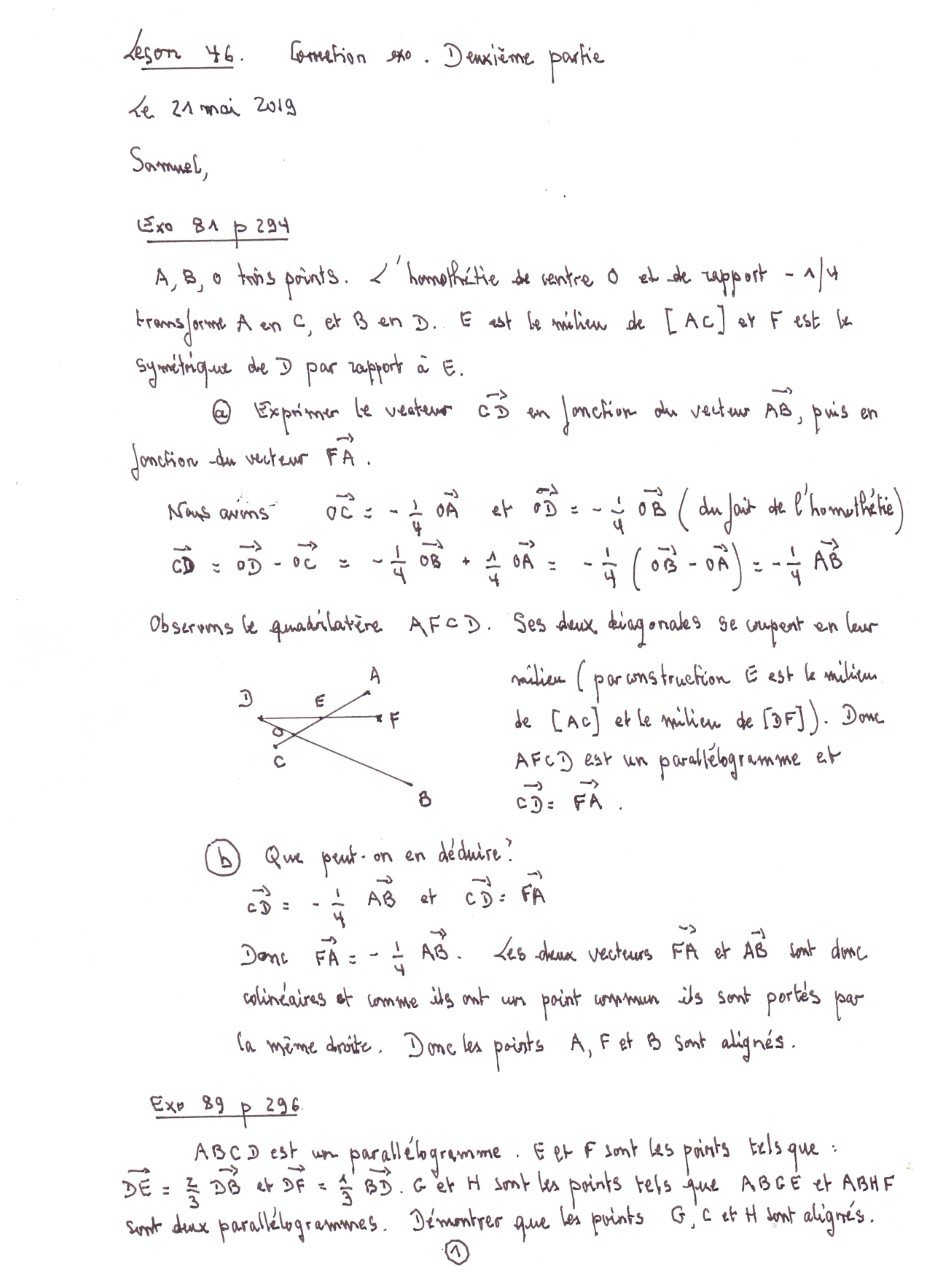 Leçon 46. Correction exo. Deuxième partie
Le 21 mai 2019
Samuel,
Exo 81 p 294
A, B, O trois points. L'homothétie de centre O et de rapport - 1/4
transforme A en C, et B en D. E est le milieu de [AC] et F est le
symétrique de D par rapport à E.
ⓐ Exprimer le vecteur $\overrightarrow{CD}$ en fonction du vecteur $\overrightarrow{AB}$, puis en
fonction du vecteur $\overrightarrow{FA}$.
Nous avons $\overrightarrow{OC} = -\frac{1}{4}\overrightarrow{OA}$ et $\overrightarrow{OD} = -\frac{1}{4}\overrightarrow{OB}$ (du fait de l'homothétie)
$\overrightarrow{CD} = \overrightarrow{OD} - \overrightarrow{OC} = -\frac{1}{4}\overrightarrow{OB} + \frac{1}{4}\overrightarrow{OA} = -\frac{1}{4}(\overrightarrow{OB} - \overrightarrow{OA}) = -\frac{1}{4}\overrightarrow{AB}$
Observons le quadrilatère AFCD. Ses deux diagonales se coupent en leur
milieu (par construction E est le milieu
de [AC] et le milieu de [DF]). Donc
AFCD est un parallélogramme et
$\overrightarrow{CD} = \overrightarrow{FA}$.
A
D
E
F
O
C
B
ⓑ Que peut-on en déduire?
$\overrightarrow{CD} = -\frac{1}{4}\overrightarrow{AB}$ et $\overrightarrow{CD} = \overrightarrow{FA}$
Donc $\overrightarrow{FA} = -\frac{1}{4}\overrightarrow{AB}$. Les deux vecteurs $\overrightarrow{FA}$ et $\overrightarrow{AB}$ sont donc
colinéaires et comme ils ont un point commun ils sont portés par
la même droite. Donc les points A, F et B sont alignés.
Exo 89 p 296
ABCD est un parallélogramme. E et F sont les points tels que :
$\overrightarrow{DE} = \frac{2}{3}\overrightarrow{DB}$ et $\overrightarrow{DF} = \frac{1}{3}\overrightarrow{BD}$. G et H sont les points tels que ABGE et ABHF
sont deux parallélogrammes. Démontrer que les points G, C et H sont alignés.
①